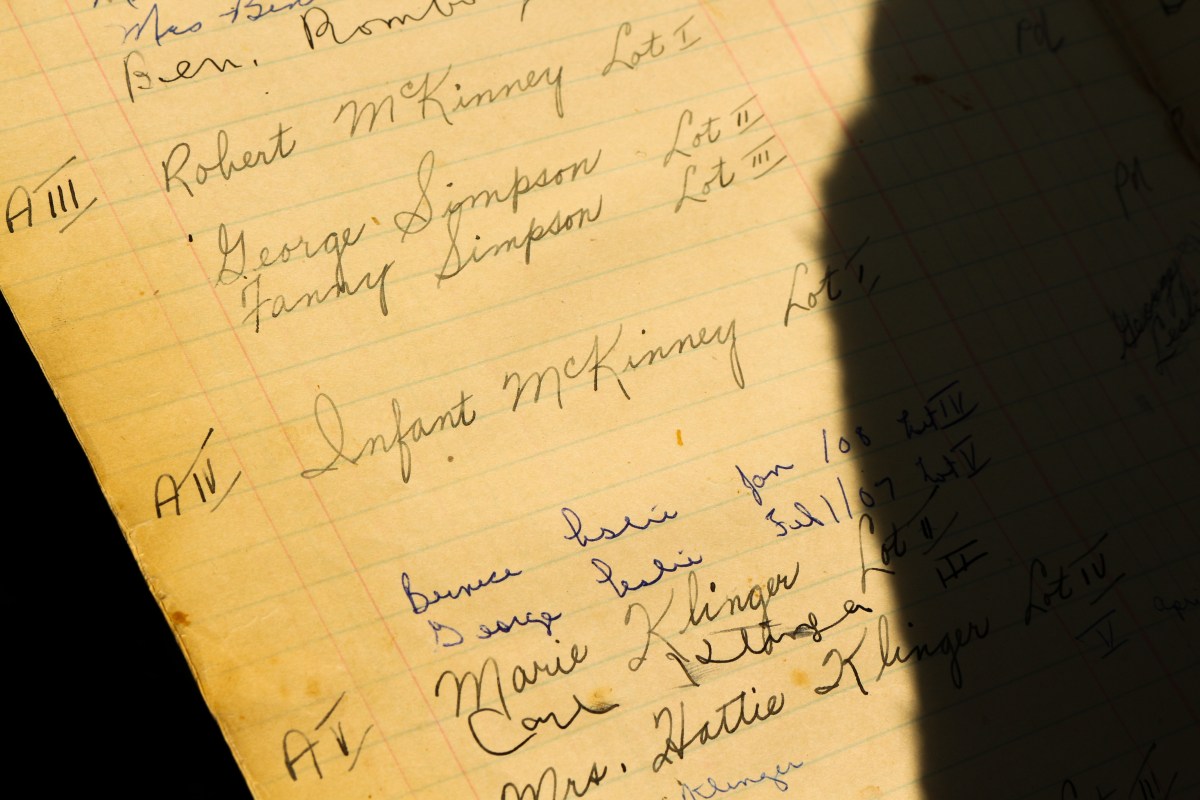 Mrs Ben
Ben. Rombo
Robert McKinney Lot I
A III
George Simpson Lot II
Fanny Simpson Lot III
Infant McKinney Lot I
A IV
Bernice Leslie Jan /08 Lot IV
George Leslie Feb 1/07 Lot V
Marie Klinger Lot II
Carl Klinger III
Mrs. Hattie Klinger Lot IV
V
A V
Klinger
Pd
Pd
George